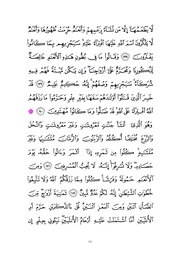 لَّا يَطْعَمُهَا إِلَّا مَن نَّشَاءُ بِزَعْمِهِمْ وَأَنْعَٰمٌ حُرِّمَتْ ظُهُورُهَا وَأَنْعَٰمٌ
لَّا يَذْكُرُونَ اسْمَ اللَّهِ عَلَيْهَا افْتِرَاءً عَلَيْهِ سَيَجْزِيهِم بِمَا كَانُوا
يَفْتَرُونَ ۝ وَقَالُوا مَا فِي بُطُونِ هَٰذِهِ الْأَنْعَٰمِ خَالِصَةٌ
لِّذُكُورِنَا وَمُحَرَّمٌ عَلَىٰ أَزْوَٰجِنَا وَإِن يَكُن مَّيْتَةً فَهُمْ فِيهِ
شُرَكَاءُ سَيَجْزِيهِمْ وَصْفَهُمْ إِنَّهُ حَكِيمٌ عَلِيمٌ ۝ قَدْ
خَسِرَ الَّذِينَ قَتَلُوا أَوْلَٰدَهُمْ سَفَهًا بِغَيْرِ عِلْمٍ وَحَرَّمُوا مَا رَزَقَهُمُ
اللَّهُ افْتِرَاءً عَلَى اللَّهِ قَدْ ضَلُّوا وَمَا كَانُوا مُهْتَدِينَ ۝
وَهُوَ الَّذِي أَنشَأَ جَنَّٰتٍ مَّعْرُوشَٰتٍ وَغَيْرَ مَعْرُوشَٰتٍ وَالنَّخْلَ
وَالزَّرْعَ مُخْتَلِفًا أُكُلُهُ وَالزَّيْتُونَ وَالرُّمَّانَ مُتَشَٰبِهًا وَغَيْرَ
مُتَشَٰبِهٍ كُلُوا مِن ثَمَرِهِ إِذَا أَثْمَرَ وَءَاتُوا حَقَّهُ يَوْمَ
حَصَادِهِ وَلَا تُسْرِفُوا إِنَّهُ لَا يُحِبُّ الْمُسْرِفِينَ ۝ وَمِنَ
الْأَنْعَٰمِ حَمُولَةً وَفَرْشًا كُلُوا مِمَّا رَزَقَكُمُ اللَّهُ وَلَا تَتَّبِعُوا
خُطُوَٰتِ الشَّيْطَٰنِ إِنَّهُ لَكُمْ عَدُوٌّ مُّبِينٌ ۝ ثَمَٰنِيَةَ أَزْوَٰجٍ مِّنَ
الضَّأْنِ اثْنَيْنِ وَمِنَ الْمَعْزِ اثْنَيْنِ قُلْ ءَالذَّكَرَيْنِ حَرَّمَ أَمِ
الْأُنثَيَيْنِ أَمَّا اشْتَمَلَتْ عَلَيْهِ أَرْحَامُ الْأُنثَيَيْنِ نَبِّـُٔونِي بِعِلْمٍ إِن